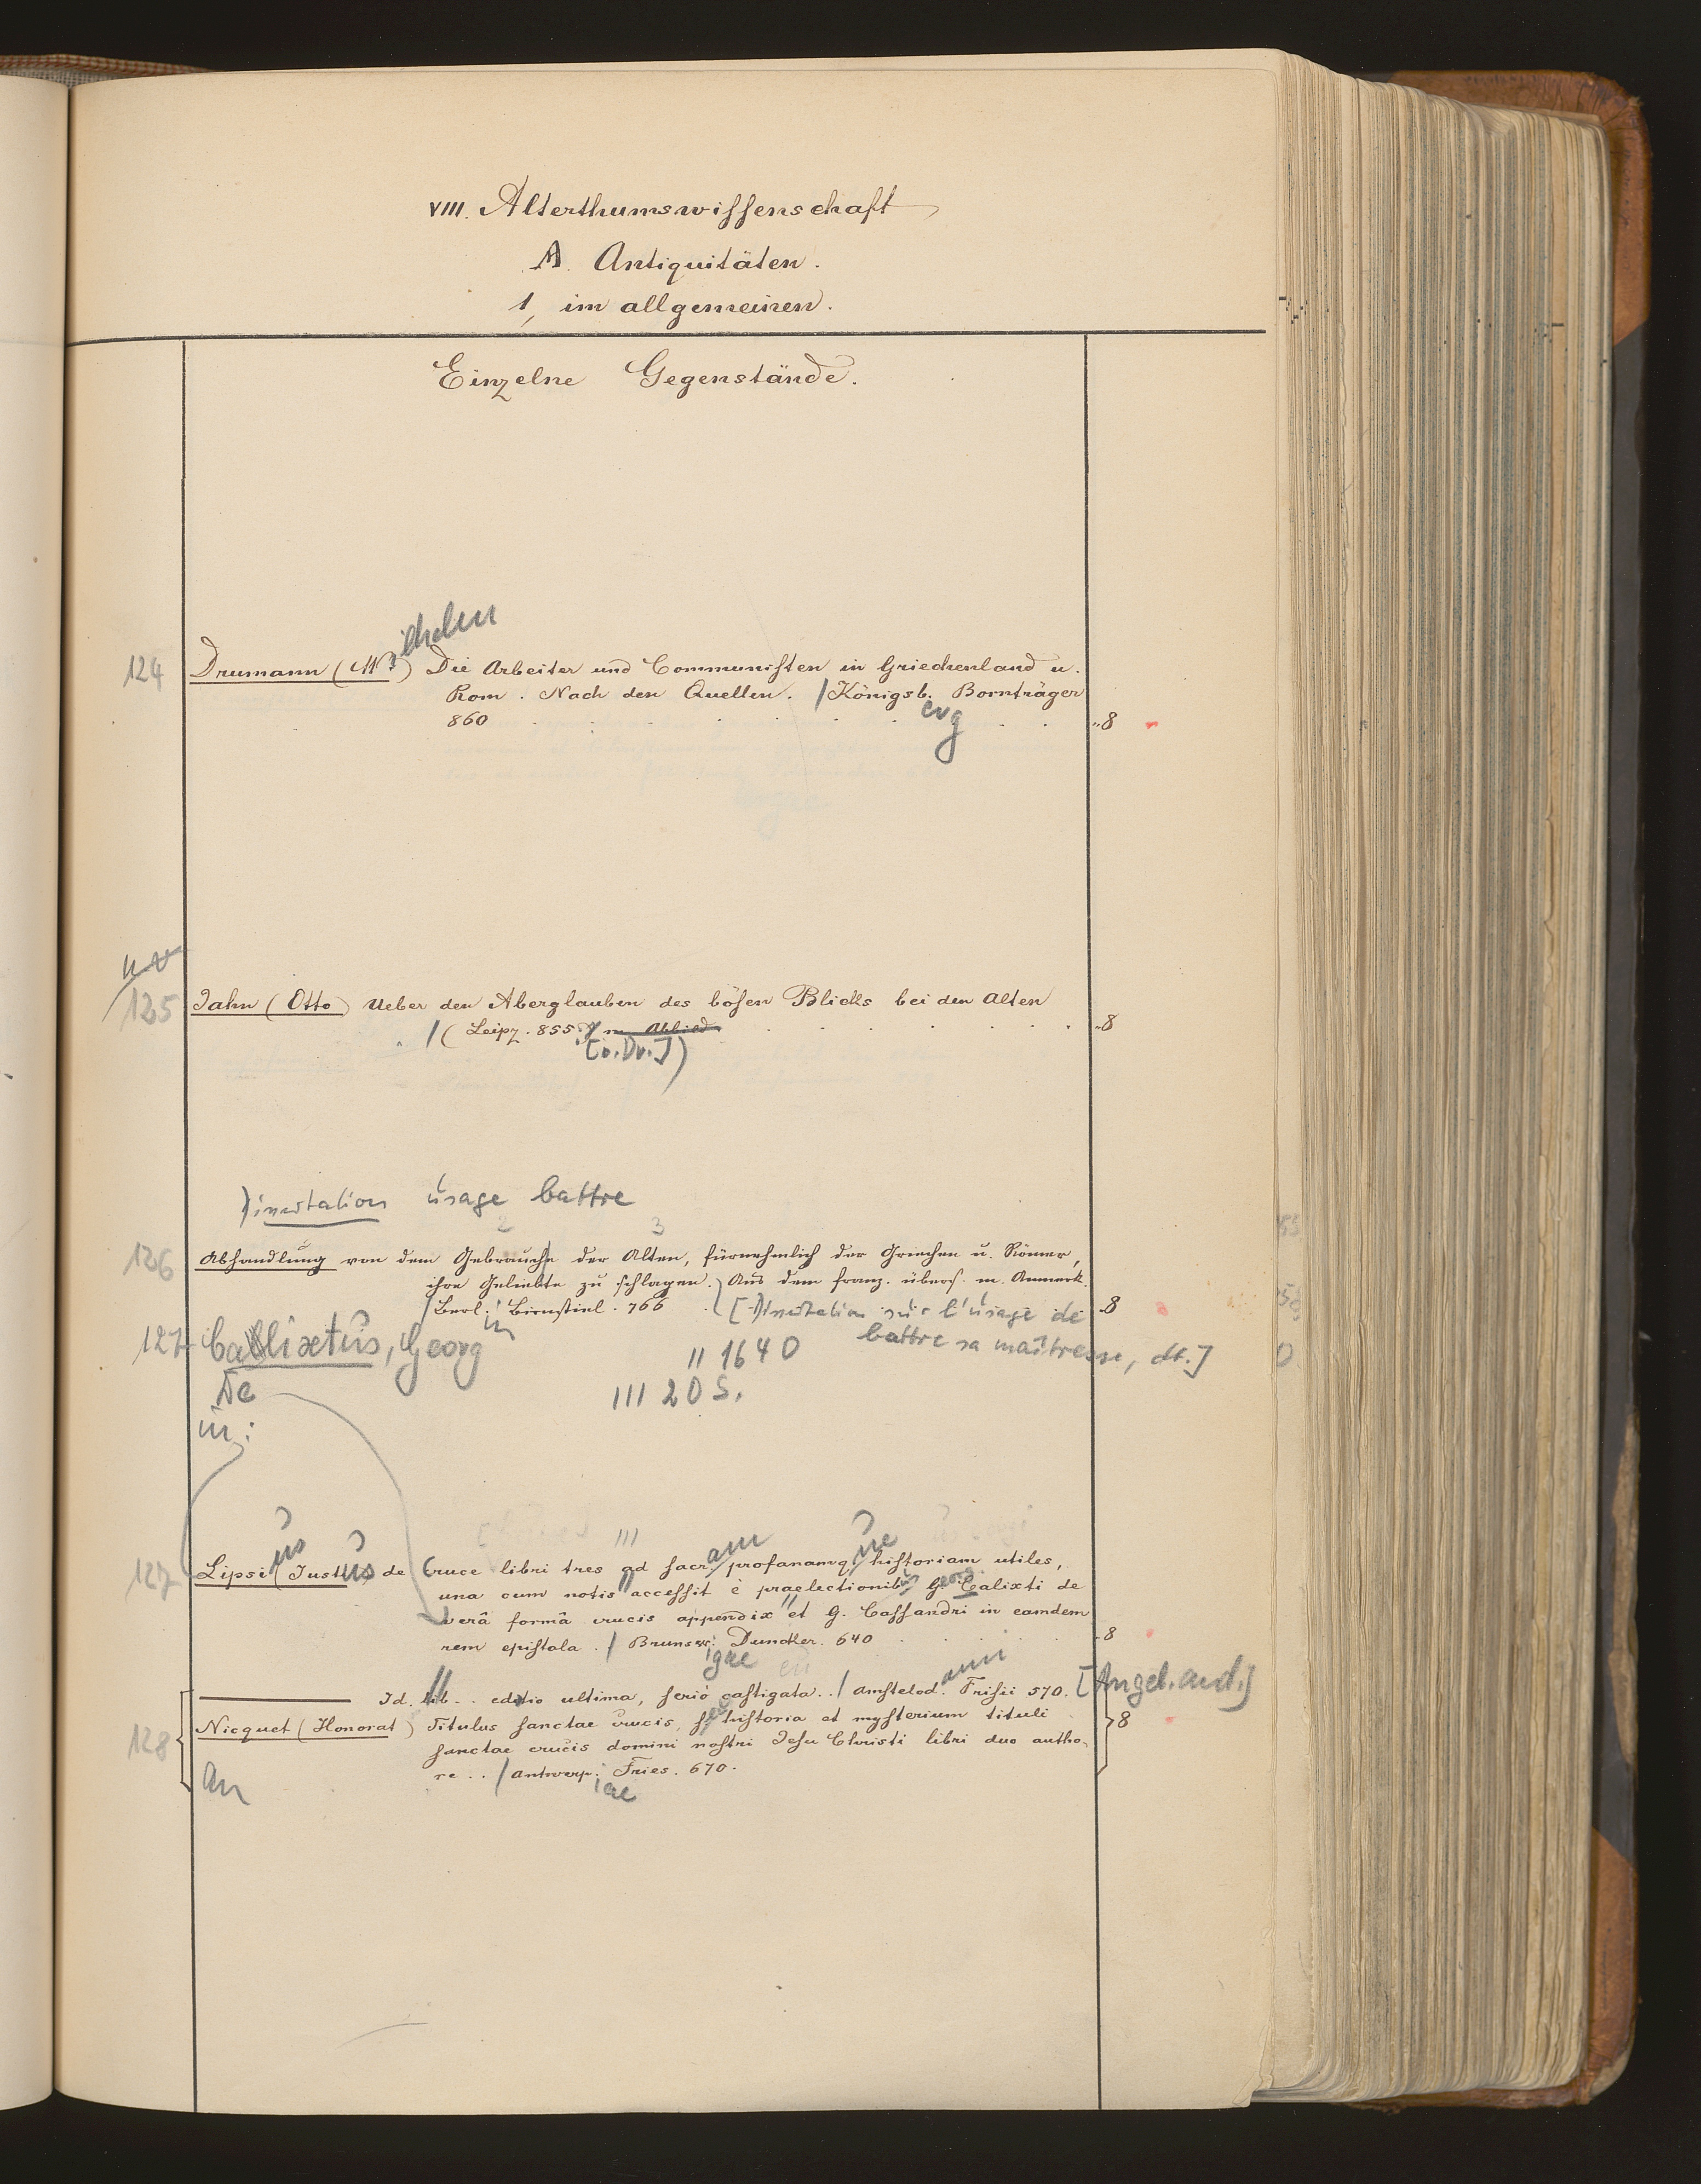 VIII. Alterthumswissenschaft
A. Antiquitäten.
1, im allgemeinen.
Einzelne Gegenstände.
ilhelm
124 Drumann (W.) Die Arbeiter und Communisten in Griechenland u.
Rom. Nach den Quellen. / Königsb. Bornträger
erg
860 8
125 Jahn (Otto) Ueber den Aberglauben des bösen Blicks bei den Alten
/ ( Leipz. 855. 8
[o. Dr.])
Dissertation usage battre
2 3
126 Abhandlung von dem Gebrauche der Alten, fürnehmlich der Griechen u. Römer,
ihre Geliebte zu schlagen. Aus dem franz. übers. m. Anmerk.
/ Berl. Birnstiel. 766 8
in [Dissertation sur l'usage de
battre sa maîtresse, dt.]
127 Callixtus, Georg
De
in:
II 1640
III 20 S.
127 Lipsius (Justus) de Cruce libri tres ad sacram profanamque historiam utiles,
una cum notis accessit è praelectionibus G. Calixti de
eorg
verâ formâ crucis appendix et G. Cassandri in eamdem
rem epistola. / Brunsw. Duncker. 640 8
igae
Id. lib. . editio ultima, seriò castigata. . / Amstelod. Frisii 570. [Angeb. an d.]
ami
128 Nicquet (Honorat) Titulus sanctae crucis, seu historia et mysterium tituli 8
sanctae crucis domini nostri Jesu Christi libri duo autho-
re . . / Antwerp. Fries. 670.
An
iae